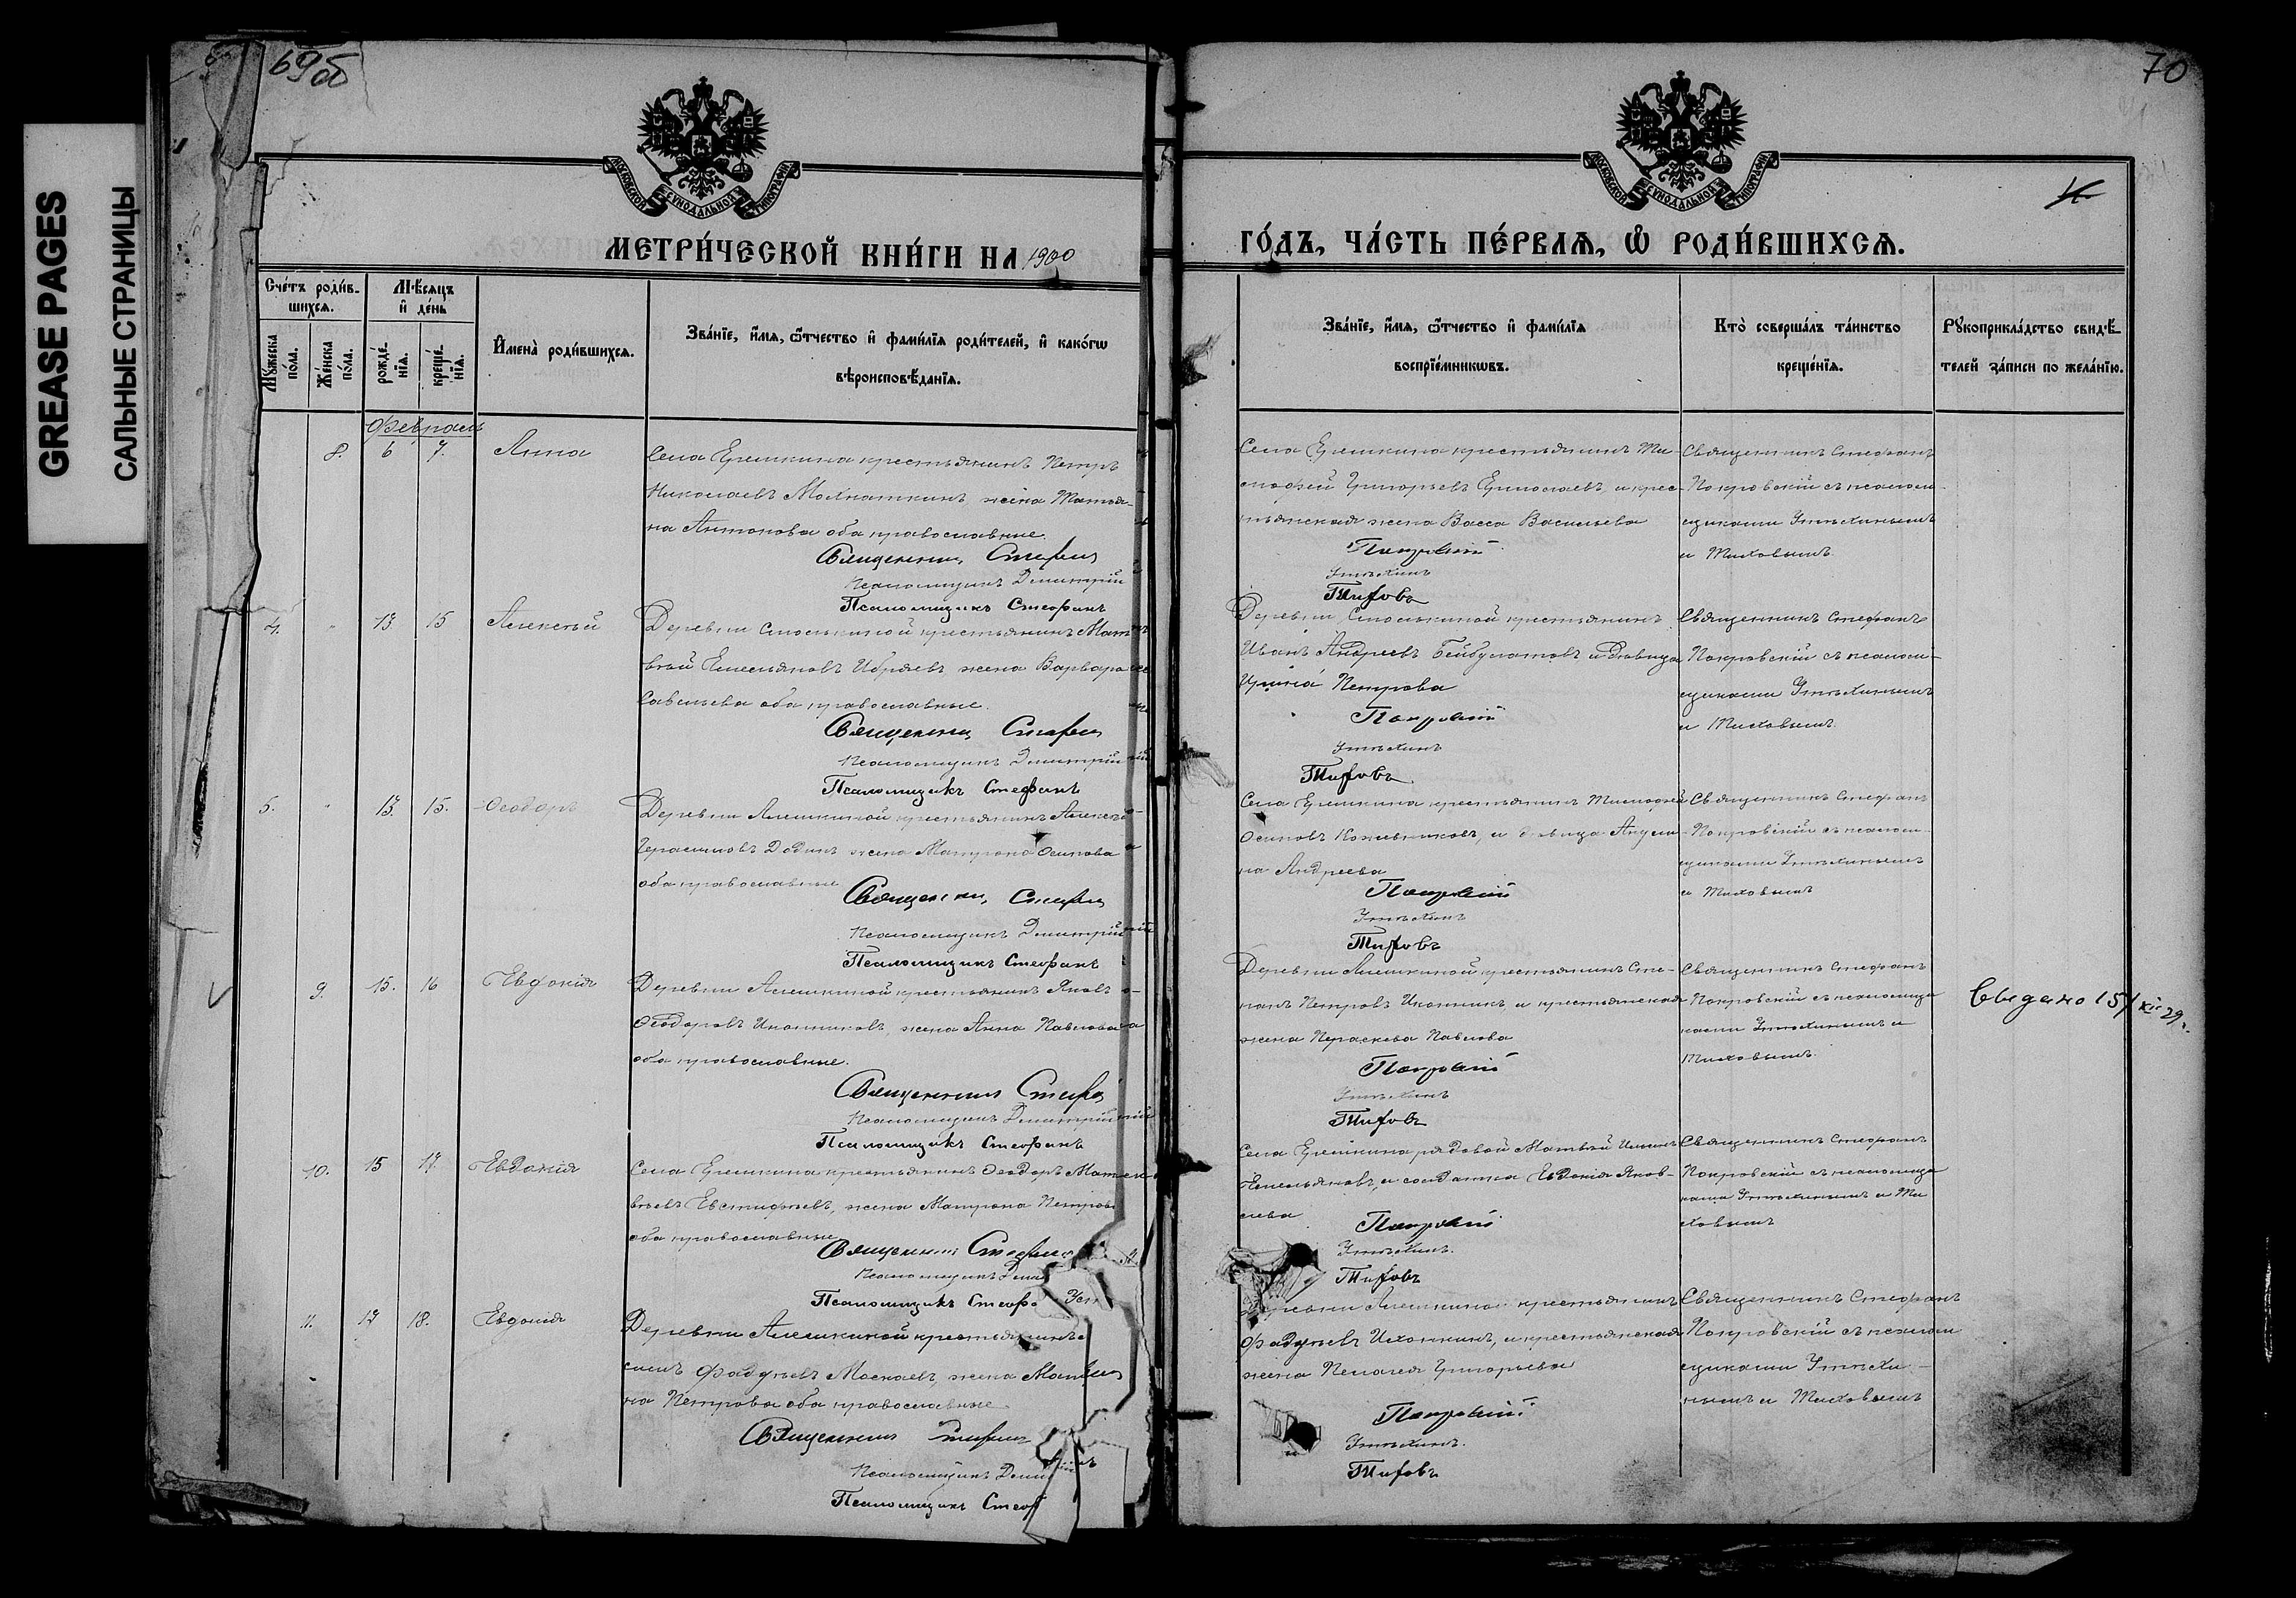 GREASE PAGES
САЛЬНЫЕ СТРАНИЦЫ
69об
70
МОСКОВСКОЙ СѴНОДАЛЬНОЙ ТИПОГРАФІИ
МОСКОВСКОЙ СѴНОДАЛЬНОЙ ТИПОГРАФІИ
МЕТРИ́ЧЕСКОЙ КНИ́ГИ НА 1900
ГО́ДЪ, ЧА́СТЬ ПЕ́РВАѦ, Ѿ РОДИ́ВШИХСѦ.
Сче́тъ роди́в-
шихсѧ.
Мꙋ́жеска по́ла.
Же́нска по́ла.
Мѣ́сѧцъ и҆ де́нь
рожде́-нїѧ.
креще́-нїѧ.
И҆мена̀ роди́вшихсѧ.
Зва́нїе, и҆́мѧ, ѻ҆́тчество и҆ фами́лїѧ роди́телей, и҆ како́гѡ
вѣроисповѣ́данїѧ.
Зва́нїе, и҆́мѧ, ѻ҆́тчество и҆ фами́лїѧ
воспрїе́мникѡвъ.
Кто̀ соверша́лъ та́инство
креще́нїѧ.
Рꙋкоприкла́дство свидѣ́-
телей за́писи по жела́нїю.
Февраль
8. 6 7. Анна
Села Ерешкина крестьянинъ Петръ
Николаевъ Мохнаткинъ, жена Татья-
на Антонова оба православные.
Священникъ Стефан
Псаломщикъ Димитрій
Псаломщикъ Стефанъ
Села Ерешкина крестьянинъ Ти-
мофей Григорьевъ Ермолаевъ, и крес-
тьянская жена Васса Васильева
Покровскій
Утѣхинъ
Тиховъ
Священникъ Стефанъ
Покровскій съ псалом-
щиками Утѣхинымъ
и Тиховымъ.
4. " 13 15 Алексѣй
Деревни крестьянинъ Мат
вѣй Емельяновъ жена Варвара
Савельева оба православные.
Священник Стефан
Псаломщикъ Димитрій
Псаломщикъ Стефанъ
Деревни крестьянинъ
Иванъ Андреевъ Бейбулатовъ и дѣвица
Ирина Петрова
Покровскій
Утѣхинъ
Тиховъ
Священникъ Стефанъ
Покровскій съ псалом-
щиками Утѣхинымъ
и Тиховымъ.
5. " 13. 15. Ѳеодоръ
Деревни Алешкиной крестьянинъ Алексѣй
Герасимовъ Дединъ жена Матрона Осипова
оба православные
Священник Стефан
Псаломщикъ Димитрій
Псаломщикъ Стефанъ
Села Ерешкина крестьянинъ Тимофей
Осиповъ Кожевниковъ, и дѣвица Акули-
на Андреева
Покровскій
Утѣхинъ
Тиховъ
Священникъ Стефанъ
Покровскій съ псалом-
щиками Утѣхинымъ
и Тиховымъ
9. 15. 16 Евдокія
Деревни Алешкиной крестьянинъ Яковъ
Ѳеодоровъ Иконниковъ, жена Анна Павлова
оба православные.
Священник Стефа
Псаломщикъ Димитрій
Псаломщикъ Стефанъ
Деревни Алешкиной крестьянинъ Сте-
панъ Петровъ и крестьянская
жена Параскева Павлова
Покровскій
Утѣхинъ
Тиховъ
Священникъ Стефанъ
Покровскій съ псаломщи
ками Утѣхинымъ и
Тиховымъ.
Выдано 15/XII 29г.
10. 15 17. Евдокія
Села Ерешкина крестьянинъ Ѳеодоръ Мат
вѣевъ Евстифѣевъ, жена Матрона Петрова
оба православные
Священник Стефан
Псаломщикъ Дими
Псаломщикъ Стеф
Села Ерешкина рядовой Матвѣй
Емельяновъ, и солдатка Евдокія Яков-
лева
Покровскій
Утѣхинъ.
Тиховъ
Священникъ Стефанъ
Покровскій съ псаломщи
ками Утѣхинымъ и Ти
ховымъ
11. 17 18. Евдокія
Деревни Алешкиной крестьянинъ
Фадѣевъ жена
на Петрова оба православные
Священник Стефан
Псаломщикъ Дими
Псаломщикъ Стеф
Деревни Алешкиной крестьянинъ
Фадѣевъ и крестьянская
жена Пелагея Григорьева
Покровскій
Утѣхинъ.
Тиховъ
Священникъ Стефанъ
Покровскій съ псалом
щиками Утѣхи-
нымъ и Тиховымъ